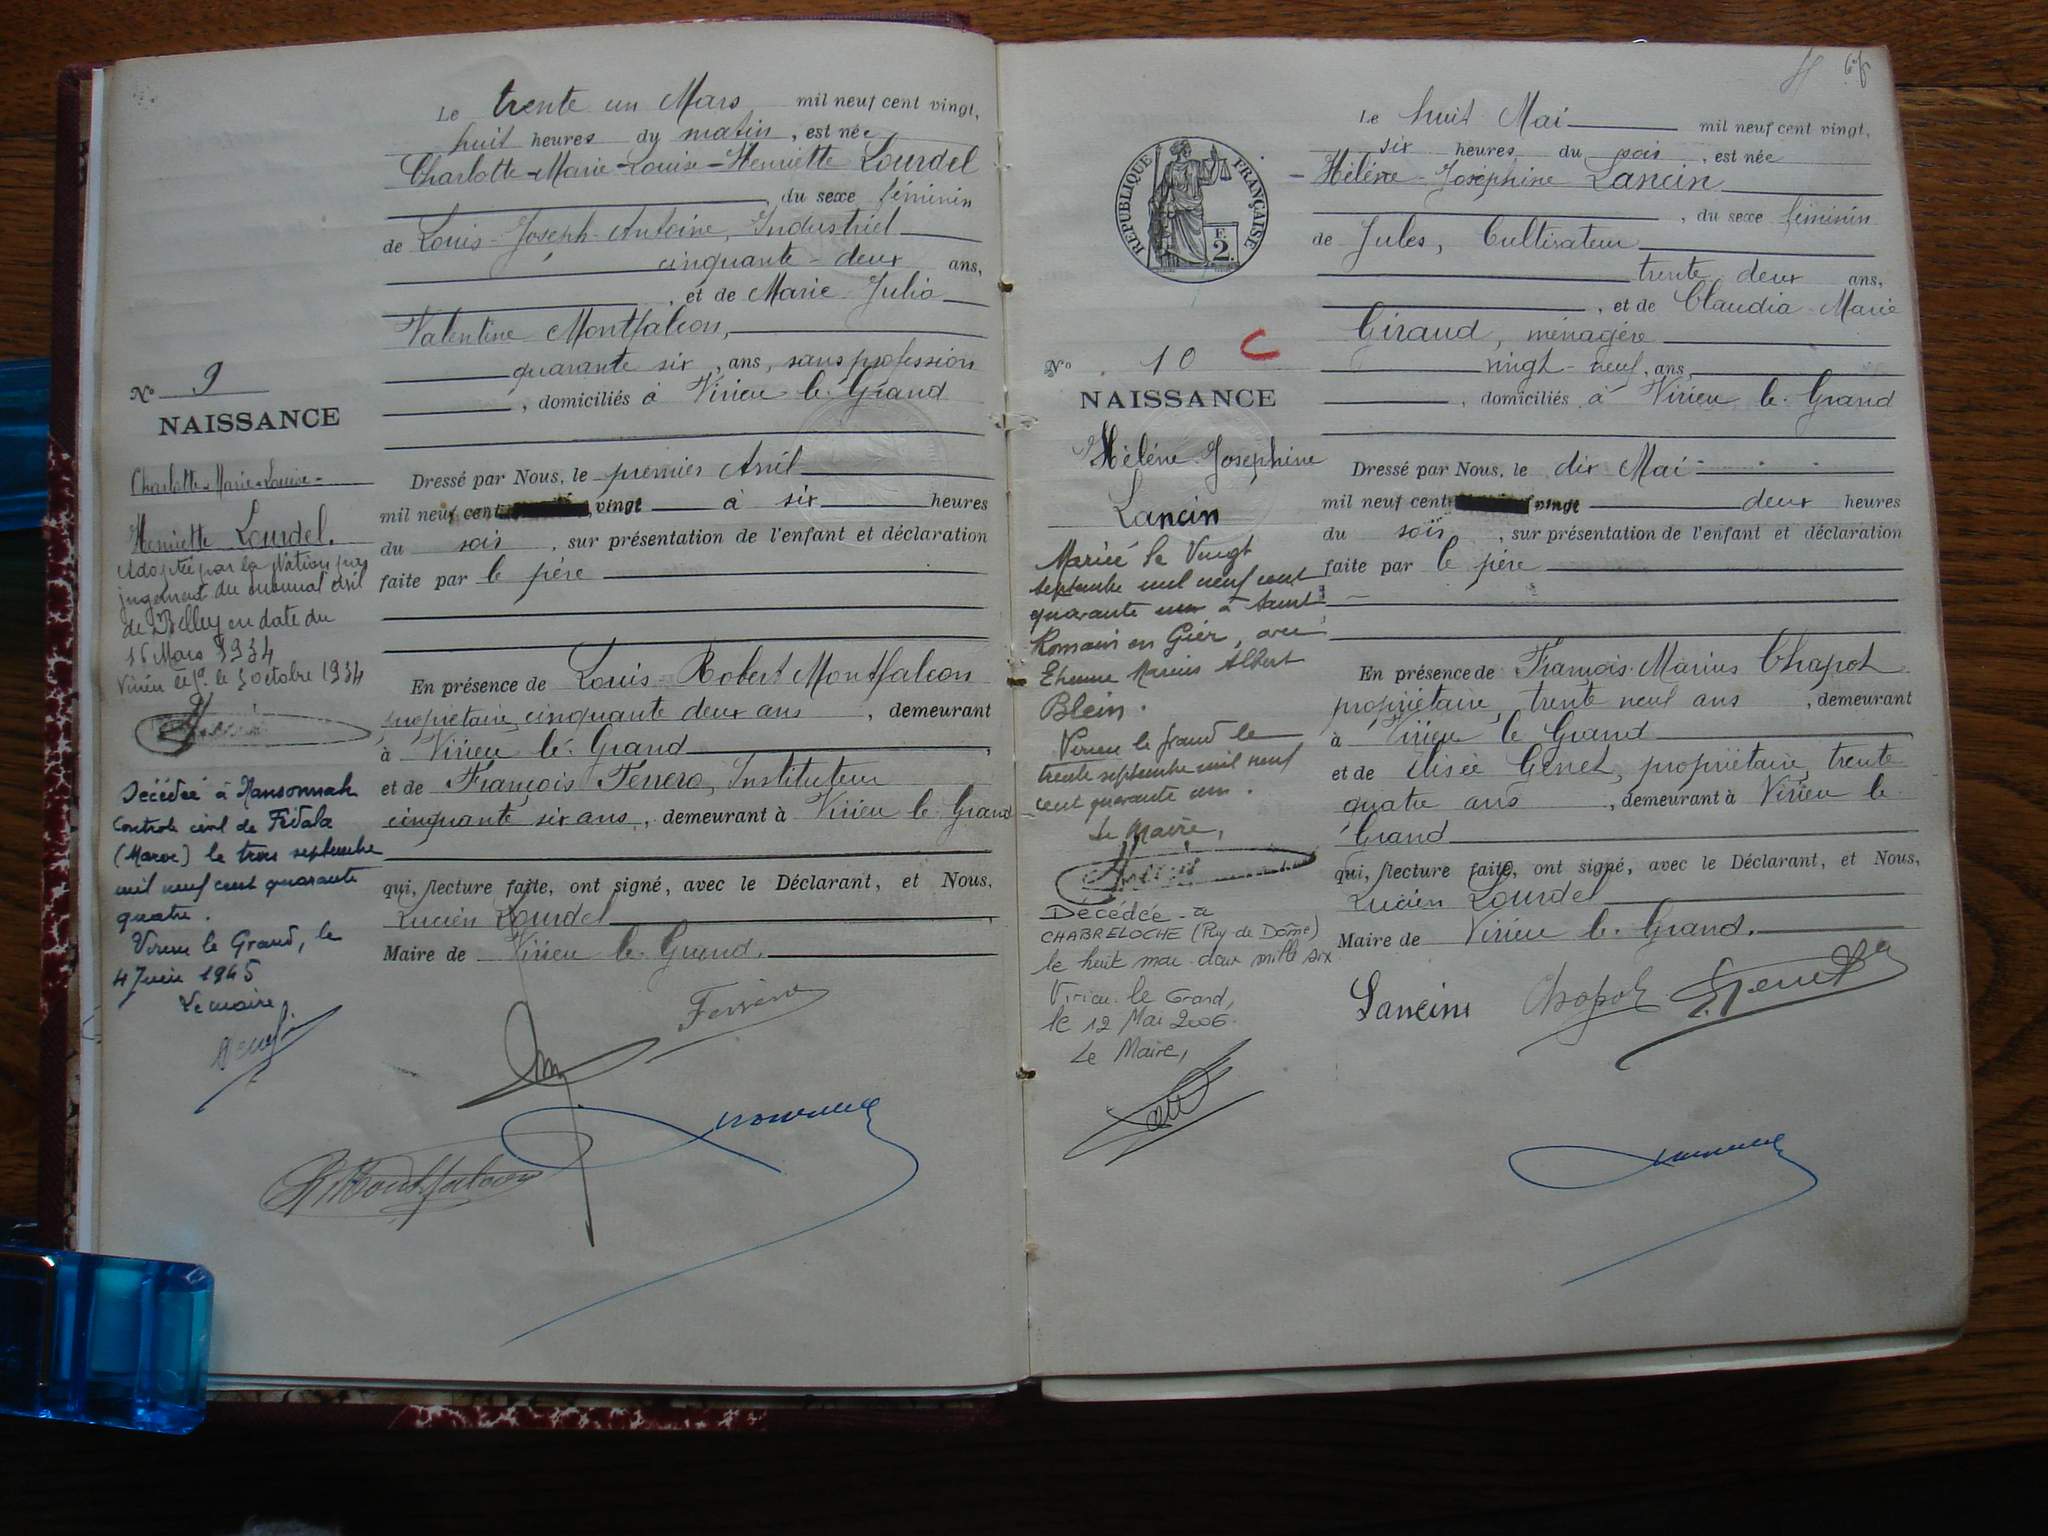 Le trente un Mars mil neuf cent vingt,
huit heures du matin, est née
Charlotte-Marie-Louise-Henriette Lourdel
, du sexe féminin
de Louis-Joseph-Antoine, Industriel
cinquante-deux ans,
, et de Marie-Julia
Valentine Montfalcon,
quarante six, ans, sans profession
, domiciliés à Virieu-le-Grand
Nº 9
NAISSANCE
Charlotte-Marie-Louise-
Henriette Lourdel.
Adoptée par la Nation par
jugement du tribunal civil
de Belley en date du
16 Mars 1934
Virieu le Gd le 3 octobre 1934
Décédée à Mansouriah
Controle civil de Fedala
(Maroc) le trois septembre
mil neuf cent quarante
quatre.
Virieu le Grand, le
4 Juin 1945
Le maire
Dressé par Nous, le premier Avril
mil neuf cent vingt à six heures
du soir, sur présentation de l'enfant et déclaration
faite par le père
En présence de Louis-Robert Montfalcon
propriétaire, cinquante deux ans, demeurant
à Virieu-le-Grand,
et de François Ferrero, Instituteur
cinquante six ans, demeurant à Virieu-le-Grand
qui, lecture faite, ont signé, avec le Déclarant, et Nous,
Lucien Lourdel,
Maire de Virieu-le-Grand.
Ferrero
R. Montfalcon
65
Le huit Mai mil neuf cent vingt,
six heures du soir, est née
Hélène-Joséphine Lancin
, du sexe féminin
de Jules, Cultivateur
trente deux ans,
, et de Claudia-Marie
Giraud, ménagère
vingt-neuf, ans,
, domiciliés à Virieu-le-Grand
RÉPUBLIQUE FRANÇAISE
F.
2.
Nº 10 C
NAISSANCE
Hélène-Joséphine
Lancin
Mariée le Vingt
septembre mil neuf cent
quarante un à Saint
Romain en Gier, avec
Etienne Marius Albert
Blein.
Virieu le Grand le
trente septembre mil neuf
cent quarante un.
Le Maire,
Décédée à
CHABRELOCHE (Puy de Dôme)
le huit mai deux mille six
Virieu-le-Grand,
le 12 Mai 2006.
Le Maire,
Dressé par Nous, le dix Mai
mil neuf cent vingt deux heures
du soir, sur présentation de l'enfant et déclaration
faite par le père
En présence de François-Marius Chapot
propriétaire, trente neuf ans, demeurant
à Virieu-le-Grand
et de Elisée Genet, propriétaire, trente
quatre ans, demeurant à Virieu-le-
Grand
qui, lecture faite, ont signé, avec le Déclarant, et Nous,
Lucien Lourdel
Maire de Virieu-le-Grand.
Lancin Chapot E. Genet